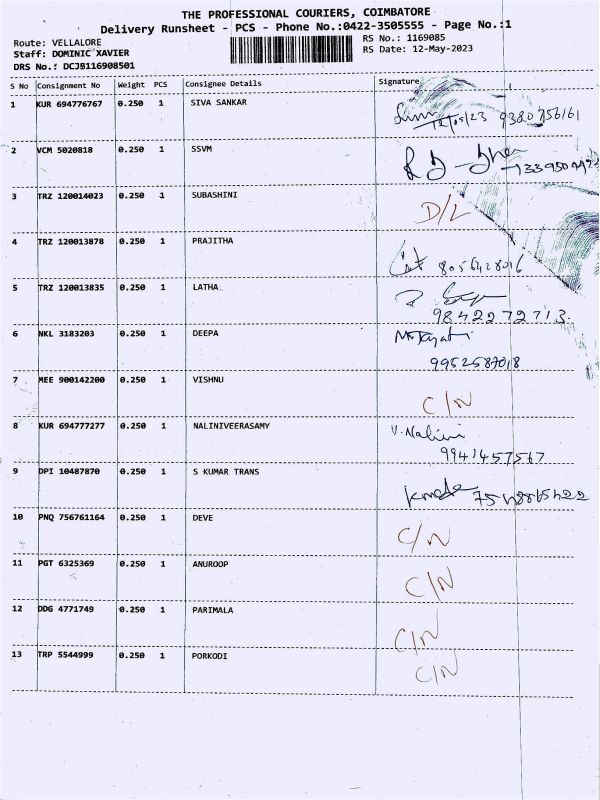 THE PROFESSIONAL COURIERS, COIMBATORE
Delivery Runsheet - PCS - Phone No.:0422-3505555 - Page No.:1
Route: VELLALORE
Staff: DOMINIC XAVIER
DRS No.: DCJB116908501
RS No.: 1169085
RS Date: 12-May-2023
S No Consignment No Weight PCS Consignee Details Signature
1 KUR 694776767 0.250 1 SIVA SANKAR
12/05/23 9380756161
2 VCM 5020818 0.250 1 SSVM
3 TRZ 120014023 0.250 1 SUBASHINI D/L
4 TRZ 120013878 0.250 1 PRAJITHA
8056428016
5 TRZ 120013835 0.250 1 LATHA
9842272713.
6 NKL 3183203 0.250 1 DEEPA
9952587018
7 MEE 900142200 0.250 1 VISHNU C/N
8 KUR 694777277 0.250 1 NALINIVEERASAMY V. Nalini
9941457567
9 DPI 10487870 0.250 1 S KUMAR TRANS
10 PNQ 756761164 0.250 1 DEVE C/N
11 PGT 6325369 0.250 1 ANUROOP C/N
12 DDG 4771749 0.250 1 PARIMALA C/N
13 TRP 5544999 0.250 1 PORKODI C/N